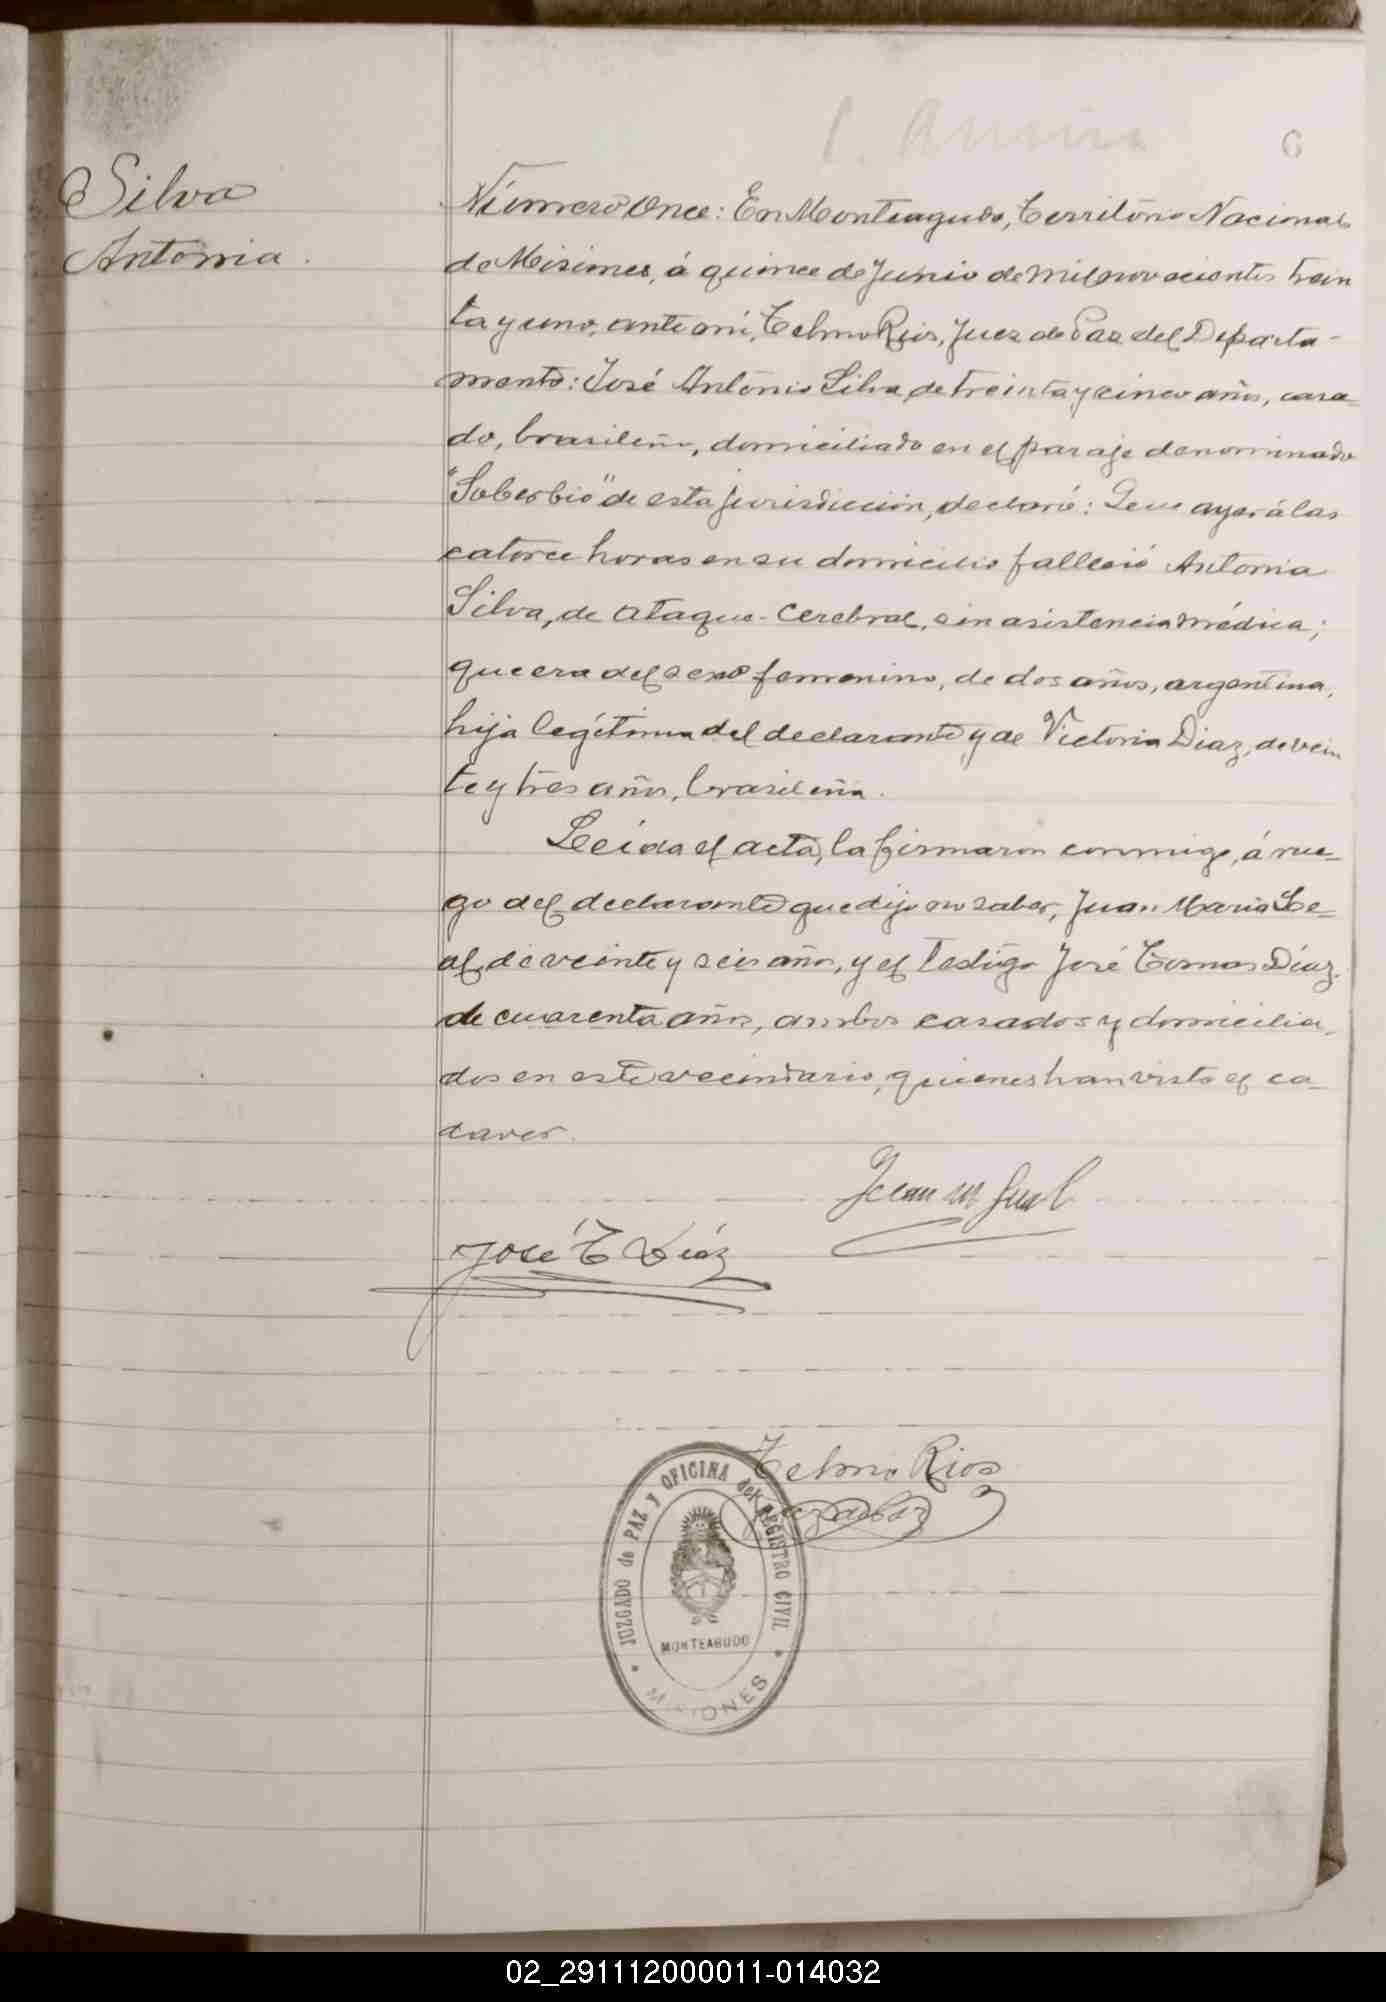 6
Silva
Antonia.
Número Once: En Monteagudo, Territorio Nacional
de Misiones, á quince de Junio de mil novecientos trein
ta y uno, ante mí, Telmo Rios, Juez de Paz del Departa-
mento: José Antonio Silva, de treinta y cinco años, casa-
do, brasileño, domiciliado en el paraje denominado
"Soberbio" de esta jurisdicción, declaró: Que ayer á las
catorce horas en su domicilio falleció Antonia
Silva, de ataque-cerebral, sin asistencia médica;
que era del sexo femenino, de dos años, argentina,
hija legítima del declarante y de Victoria Diaz, de vein
te y tres años, brasileña.
Leida el acta, la firmaron conmigo, á rue-
go del declarante que dijo no saber, Juan Maria Le-
al, de veinte y seis años, y el testigo José Tomas Díaz,
de cuarenta años, ambos casados y domicilia-
dos en este vecindario, quienes han visto el ca-
daver.
Juan M
José T Díaz
Telmo Rios
JUZGADO de PAZ y OFICINA del REGISTRO CIVIL
MONTEAGUDO
MISIONES
02_291112000011-014032